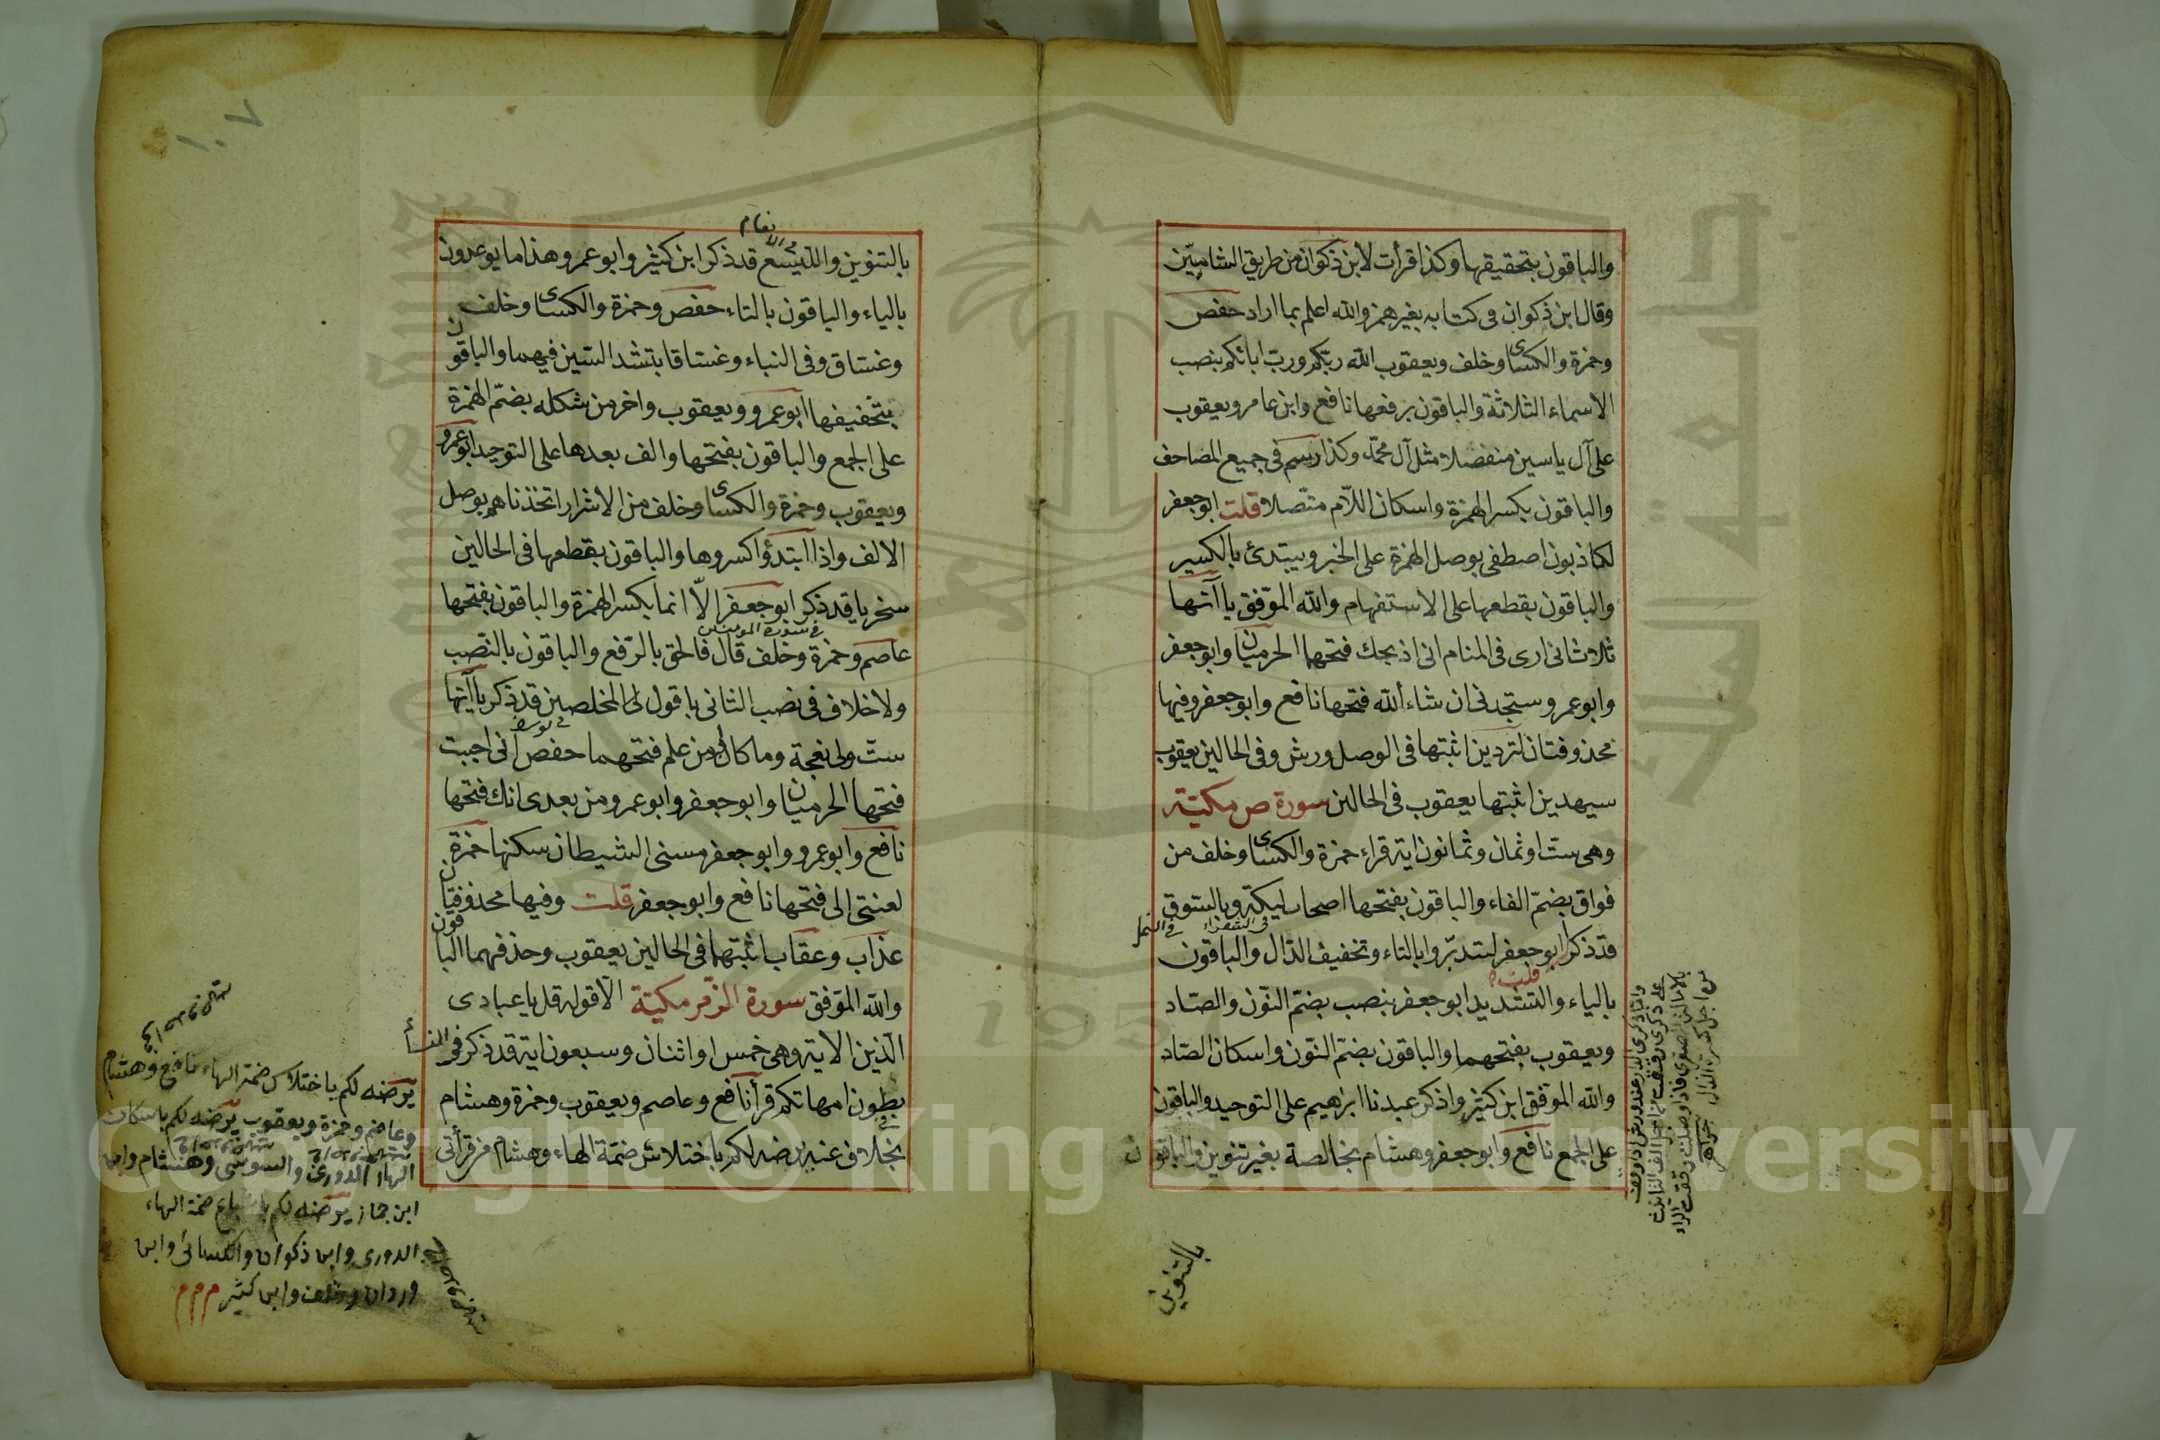 والباقون بتحقيقها وكذا قرأت لابن ذكوان من طريق الشاميين
وقال ابن ذكوان في كتابه بغير همز والله اعلم بما اراد حفص
وحمزة والكسائى وخلف ويعقوب الله ربكم ورب ابائكم بنصب
الاسماء الثلاثة والباقون برفعها نافع وابن عامر ويعقوب
على آل ياسين منفصلا مثل آل محمد وكذا رسم في جميع المصاحف
والباقون بكسر الهمزة واسكان اللام متصلا قلت ابو جعفر
لكاذبون اصطفى بوصل الهمزة على الخبر ويبتدئ بالكسر
والباقون بقطعها على الاستفهام والله الموفق ياآتها
ثلاث انى ارى في المنام انى اذبحك فتحهما الحرميان وابو جعفر
وابو عمرو ستجدنى ان شاء الله فتحها نافع وابو جعفر وفيها
محذوفتان لتردين اثبتها في الوصل ورش وفي الحالين يعقوب
سيهدين اثبتها يعقوب في الحالين سورة ص مكية
وهي ست اوثمان وثمانون اية قراء حمزة والكسائى وخلف من
فواق بضم الفاء والباقون بفتحها اصحاب ليكة وبالسوق
فى الشعراء فى النمل
قد ذكر ابو جعفر لتدبروا بالتاء وتخفيف الدال والباقون
قلت
بالياء والتشديد ابو جعفر بنصب بضم النون والصاد
ويعقوب بفتحهما والباقون بضم النون واسكان الصاد
والله الموفق ابن كثير واذكر عبدنا ابرهيم على التوحيد والباقون
على الجمع نافع وابو جعفر وهشام بخالصة بغير تنوين والباقون
بالتنوين
١٠٧
فى الانعام
بالتنوين والليسع قد ذكر ابن كثير وابو عمرو هذا ما يوعدون
بالياء والباقون بالتاء حفص وحمزة والكسائى وخلف
وغساق وفى النباء وغساقا بتشد السين فيهما والباقون
بتخفيفها ابو عمرو ويعقوب واخر من شكله بضم الهمزة
على الجمع والباقون بفتحها والف بعدها على التوحيد ابو عمرو
ويعقوب وحمزة والكسائى وخلف من الاشرار اتخذناهم بوصل
الالف واذا ابتدؤا كسروها والباقون بقطعها في الحالين
سخريا قد ذكر ابو جعفر الا انما بكسر الهمزة والباقون بفتحها
فى سورة المومنين
عاصم وحمزة وخلف قال فالحق بالرفع والباقون بالنصب
ولا خلاف في نصب الثانى باقول لى المخلصين قد ذكر ياآتها
فى يوسف
ست ولى نعجة وما كان لى من علم فتحهما حفص انى احببت
فتحها الحرميان وابو جعفر وابو عمرو من بعدى انك فتحها
نافع وابو عمرو وابو جعفر مسنى الشيطان سكنها حمزة
لعنتى الى فتحها نافع وابو جعفر قلت وفيها محذوفتان
عذاب وعقاب اثبتهما في الحالين يعقوب وحذفهما الباقون
والله الموفق سورة الزمر مكية الا قوله قل يا عبادى
الذين الاية وهي خمس او اثنان وسبعون اية قد ذكر في النسأ
بطون امهاتكم قرأ نافع وعاصم ويعقوب وحمزة وهشام
بخلاف عنه يرضه لكم باختلاس ضمة الهاء وهشام من قرأتى
يرضه لكم باختلاس ضمة الهاء نافع وهشام
وعاصم وحمزة ويعقوب يرضه لكم باسكان
الهاء الدورى والسوسى وهشام وابن
ابن جماز يرضه لكم باشباع ضمة الهاء
الدورى وابن ذكوان والكسائى وابن
وردان وخلف وابن كثير م م م
Copyright © King Saud University
1957